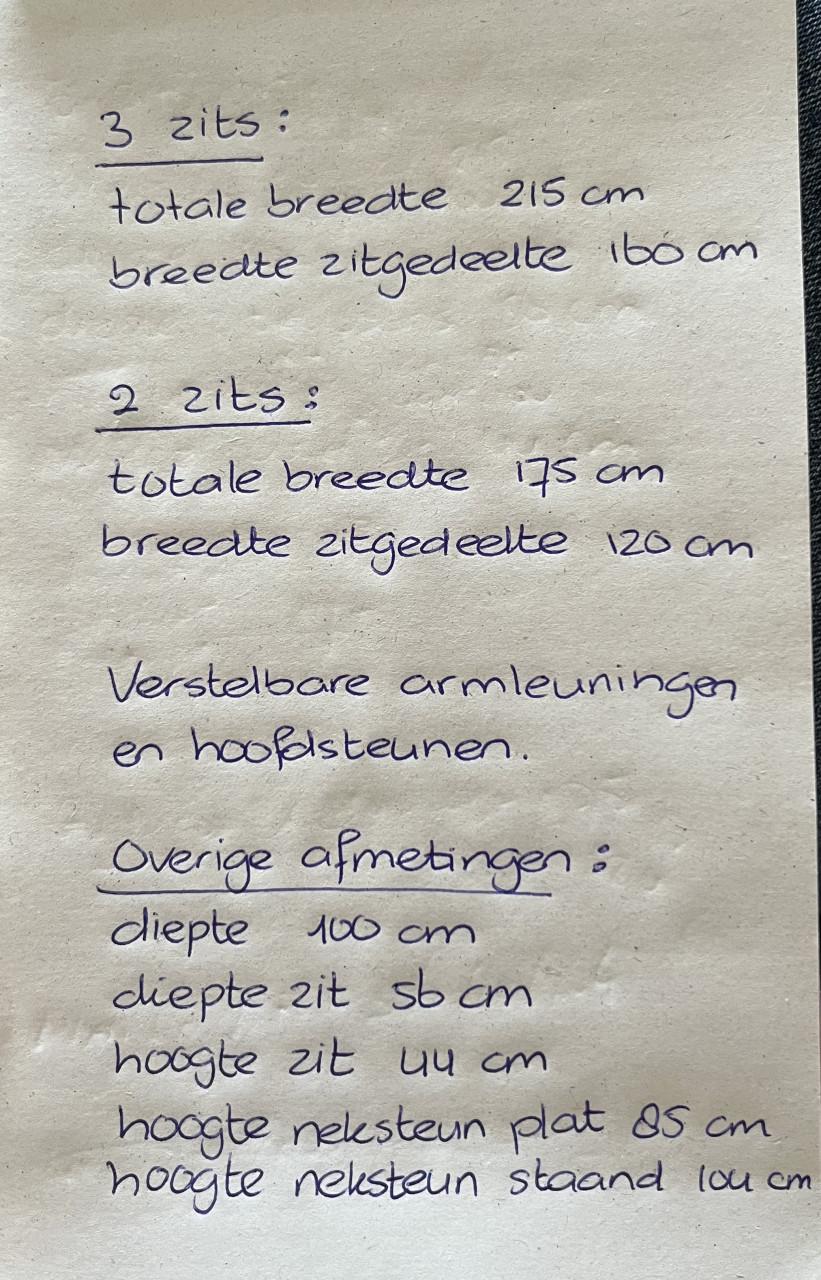 3 zits:
totale breedte 215 cm
breedte zitgedeelte 160 cm
2 zits:
totale breedte 175 cm
breedte zitgedeelte 120 cm
Verstelbare armleuningen
en hoofdsteunen.
Overige afmetingen:
diepte 100 cm
diepte zit 56 cm
hoogte zit 44 cm
hoogte neksteun plat 85 cm
hoogte neksteun staand 104 cm